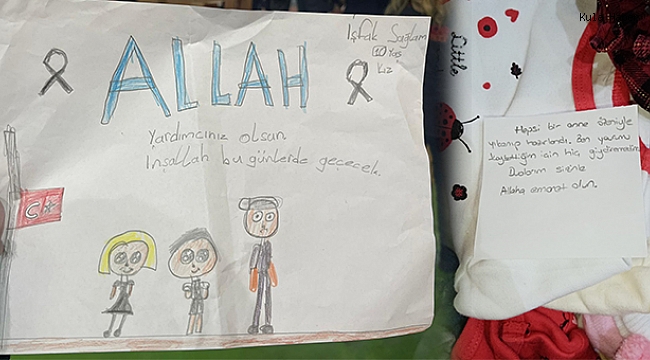 Işfak Sağlam
10 Yaş
Kız
ALLAH
Yardımcınız olsun
İnşallah bu günlerde geçecek.
Little
Hepsi bir anne özeniyle
yıkanıp hazırlandı. Ben yavrumu
kaybettiğim için hiç giydiremedim
Dualarım sizinle
Allaha emanet olun.